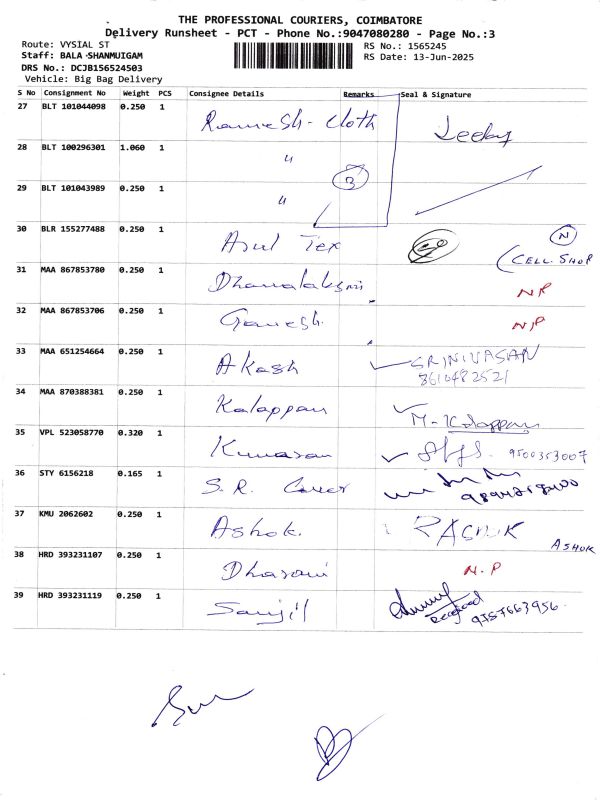 THE PROFESSIONAL COURIERS, COIMBATORE
Delivery Runsheet - PCT - Phone No.:9047080280 - Page No.:3
Route: VYSIAL ST
RS No.: 1565245
Staff: BALA SHANMUIGAM
RS Date: 13-Jun-2025
DRS No.: DCJB156524503
Vehicle: Big Bag Delivery
S No Consignment No Weight PCS Consignee Details Remarks Seal & Signature
27 BLT 101044098 0.250 1 Ramesh- Cloth
28 BLT 100296301 1.060 1 "
29 BLT 101043989 0.250 1 " 3
30 BLR 155277488 0.250 1 Arul Tex N
CELL. SHOP
31 MAA 867853780 0.250 1 Dhanalakshmi N P
32 MAA 867853706 0.250 1 Ganesh. N P
33 MAA 651254664 0.250 1 Akash SRINIVASAN
8610482521
34 MAA 870388381 0.250 1 Kalappan M-Kalappan
35 VPL 523058770 0.320 1 Kumaran 9500353007
36 STY 6156218 0.165 1 S. R. Cover
37 KMU 2062602 0.250 1 Ashok. ASHOK
38 HRD 393231107 0.250 1 Dharani N.P
39 HRD 393231119 0.250 1 9757663956